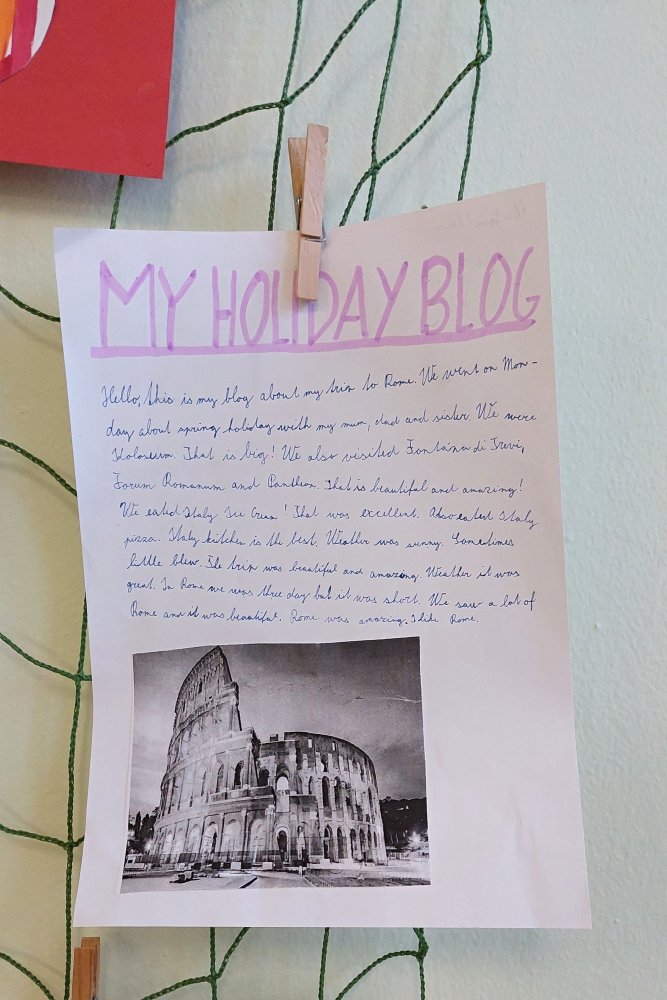 MY HOLIDAY BLOG
Hello, this is my blog about my trip to Rome. We went on Mon-
day about spring holiday with my mum, dad and sister. We were
Koloseum. That is big! We also visited Fontána di Trevi,
Forum Romanum and Pantheon. That is beautiful and amazing!
We eated Italy Ice Cream! That was excellent. Also eated Italy
pizza. Italy kitchen is the best. Weather was sunny. Sometimes
little blew. The trip was beautiful and amazing. Weather it was
great. In Rome we was three day but it was short. We saw a lot of
Rome and it was beautiful. Rome was amazing. I like Rome.